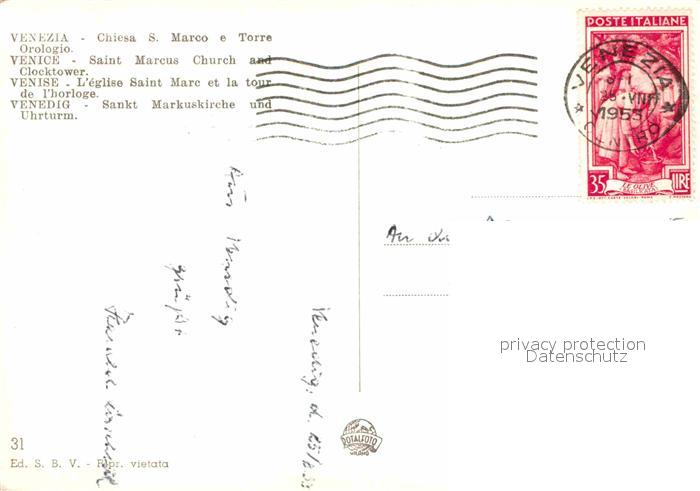 VENEZIA - Chiesa S. Marco e Torre
Orologio.
VENICE - Saint Marcus Church and
Clocktower.
VENISE - L'église Saint Marc et la tour
de l'horloge.
VENEDIG - Sankt Markuskirche und
Uhrturm.
POSTE ITALIANE
VENEZIA
1953
CENTRO
35 LIRE
An
Aus Venedig
grüßt
Venedig, d.
privacy protection
Datenschutz
ROTALFOTO
MILANO
31
Ed. S. B. V. - Ripr. vietata